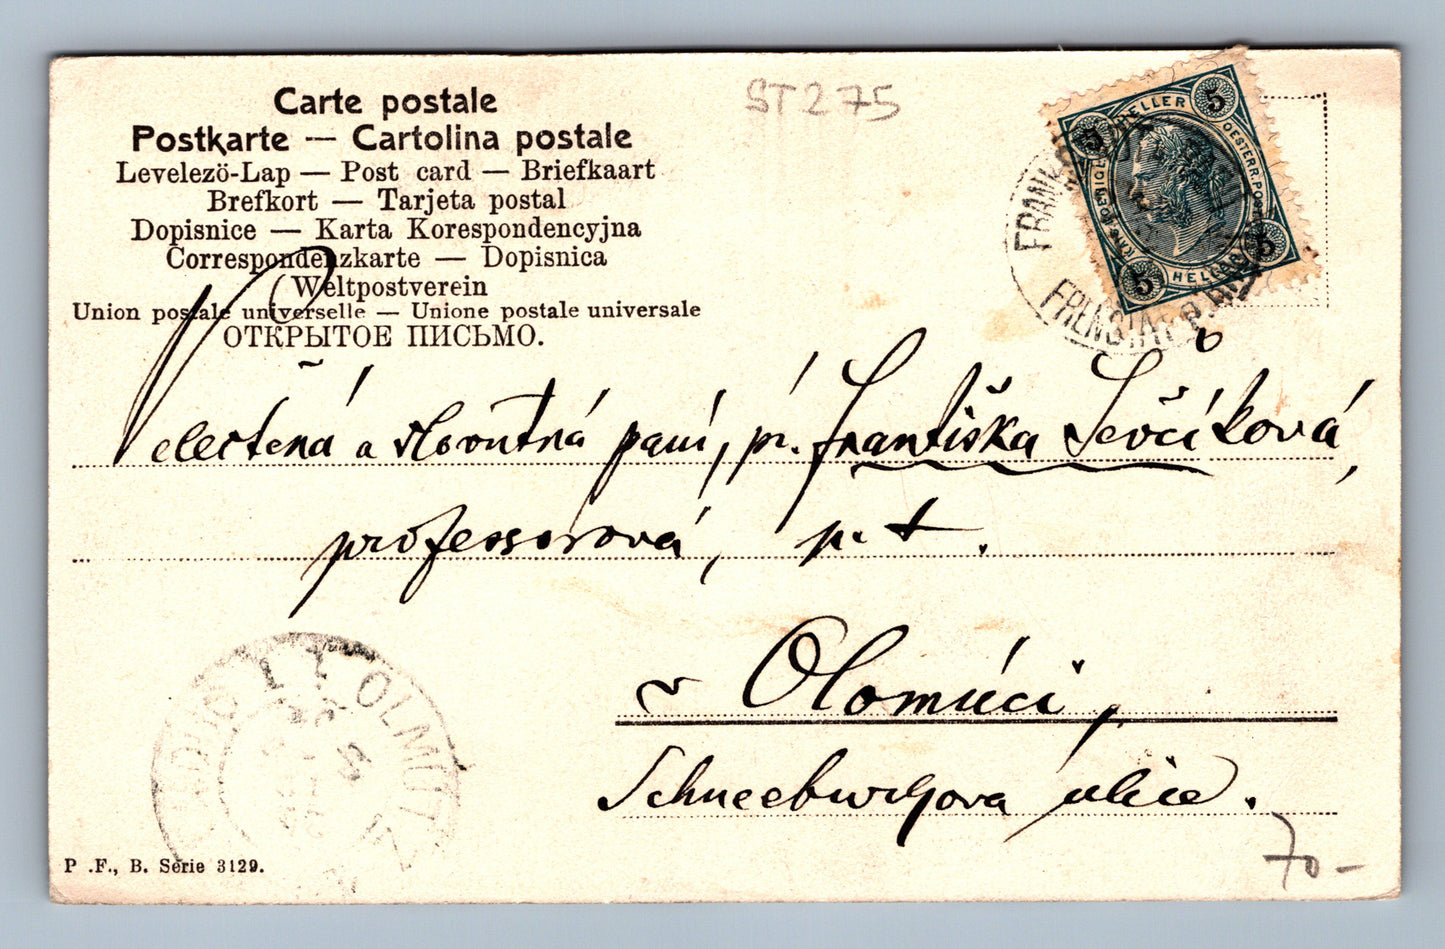 Carte postale
Postkarte — Cartolina postale
Levelezö-Lap — Post card — Briefkaart
Brefkort — Tarjeta postal
Dopisnice — Karta Korespondencyjna
Correspondenzkarte — Dopisnica
Weltpostverein
Union postale universelle — Unione postale universale
ОТКРЫТОЕ ПИСЬМО.
ST 275
5 HELLER 5
OESTERR. POST
5 HELLER 5
FRENŠTÁT P. R.
Velectěná a slovutná paní, pí. Františka Ševčíková,
professorová, p. t.
v Olomúci,
Schneeburgova ulice.
OLMÜTZ
P .F., B. Serie 3129.
70-